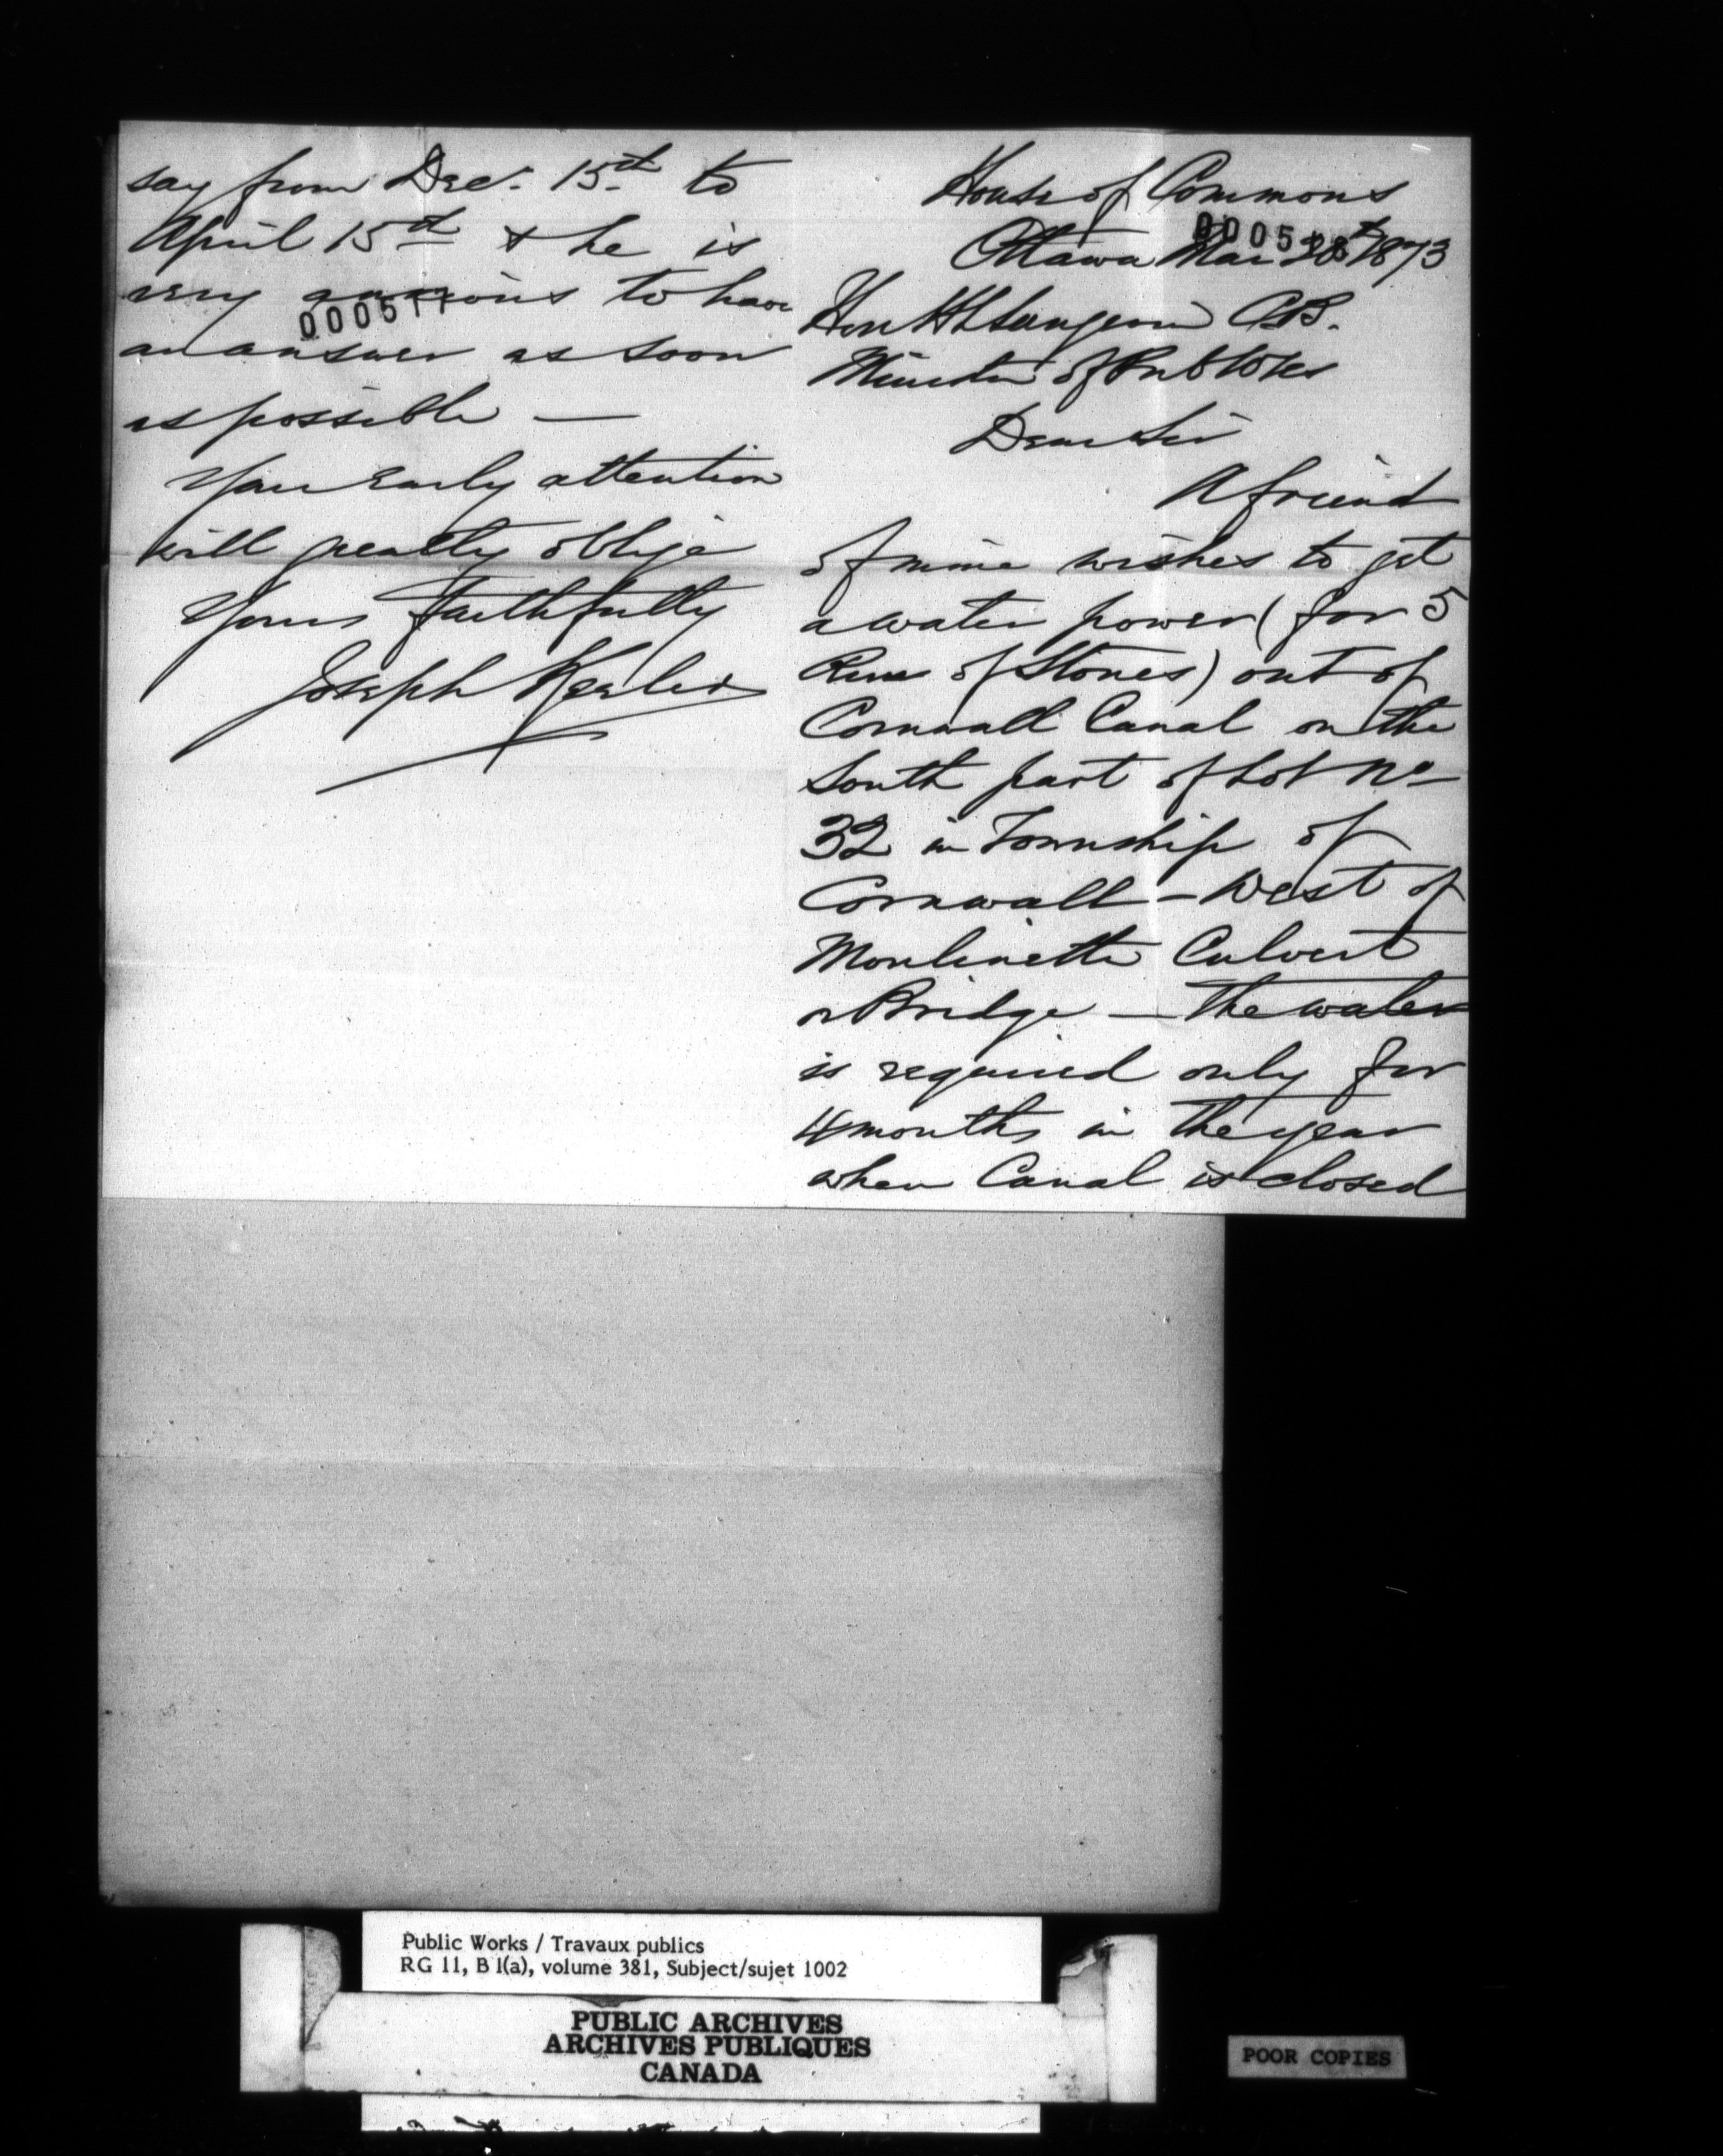 House of Commons
Ottawa Mar 28th 1873
Hon H L Langevin CB.
Minister of Pub Wks
Dear Sir
A friend
of mine wishes to get
a water power (for 5
Run of Stones) out of
Cornwall Canal on the
South part of Lot No
32 in Township of
Cornwall - West of
Moulinette Culvert
or Bridge — The water
is required only for
4 months in the year
when Canal is closed
say from Dec. 15th to
April 15th & he is
very anxious to have
an answer as soon
as possible —
Your early attention
will greatly oblige
Yours faithfully
Joseph Keeler
00051
0005
Public Works / Travaux publics
RG 11, B 1(a), volume 381, Subject/sujet 1002
PUBLIC ARCHIVES
ARCHIVES PUBLIQUES
CANADA
POOR COPIES